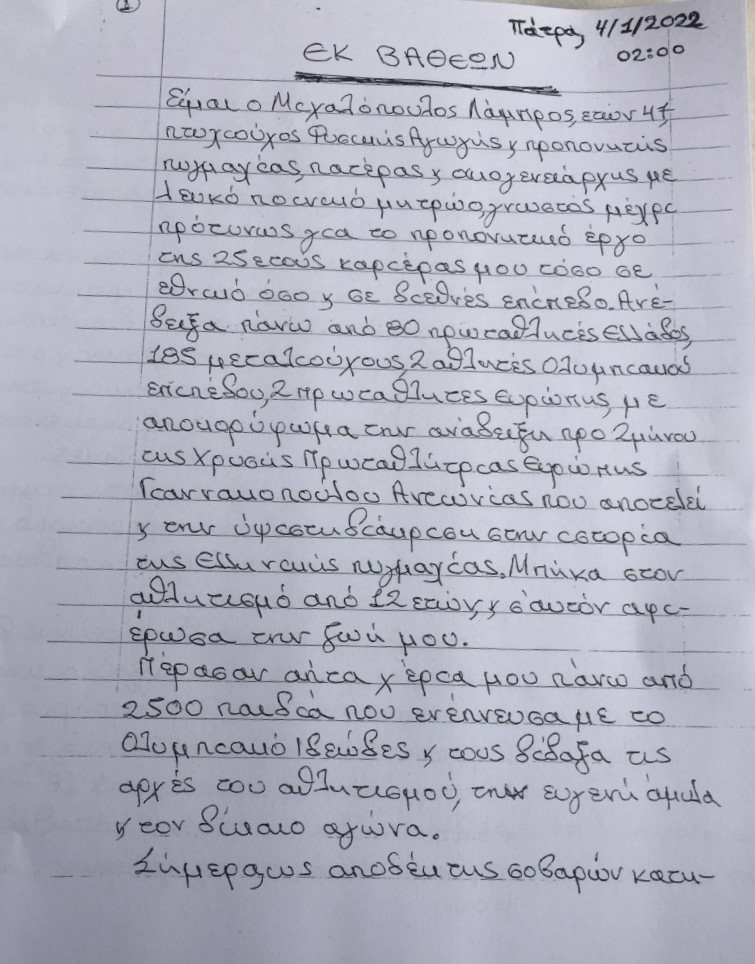 1
Πάτρα, 4/1/2022
02:00
ΕΚ ΒΑΘΕΩΝ
Είμαι ο Μιχαλόπουλος Λάμπρος, ετών 47,
πτυχιούχος Φυσικής Αγωγής ϗ προπονητής
πυγμαχίας, πατέρας ϗ οικογενειάρχης με
λευκό ποινικό μητρώο, γνωστός μέχρι
πρότινως για το προπονητικό έργο
της 25ετούς καριέρας μου τόσο σε
εθνικό όσο ϗ σε διεθνές επίπεδο. Ανέ-
δειξα πάνω από 80 πρωταθλητές Ελλάδος,
185 μεταλιούχους, 2 αθλητές Ολυμπιακού
επιπέδου, 2 πρωταθλητές Ευρώπης, με
αποκορύφωμα την ανάδειξη προ 2μήνου
της Χρυσής Πρωταθλήτριας Ευρώπης
Γιαννακοπούλου Αντωνίας που αποτελεί
ϗ την ύψιστη διάκριση στην ιστορία
της Ελληνικής πυγμαχίας. Μπήκα στον
αθλητισμό από 12 ετών, ϗ σ'αυτόν αφι-
έρωσα την ζωή μου.
Πέρασαν απ'τα χέρια μου πάνω από
2500 παιδιά που ενέπνευσα με το
Ολυμπιακό Ιδεώδες ϗ τους δίδαξα τις
αρχές του αθλητισμού, την ευγενή άμιλα
ϗ τον δίκαιο αγώνα.
Σήμερα, ως αποδέκτης σοβαρών κατη-